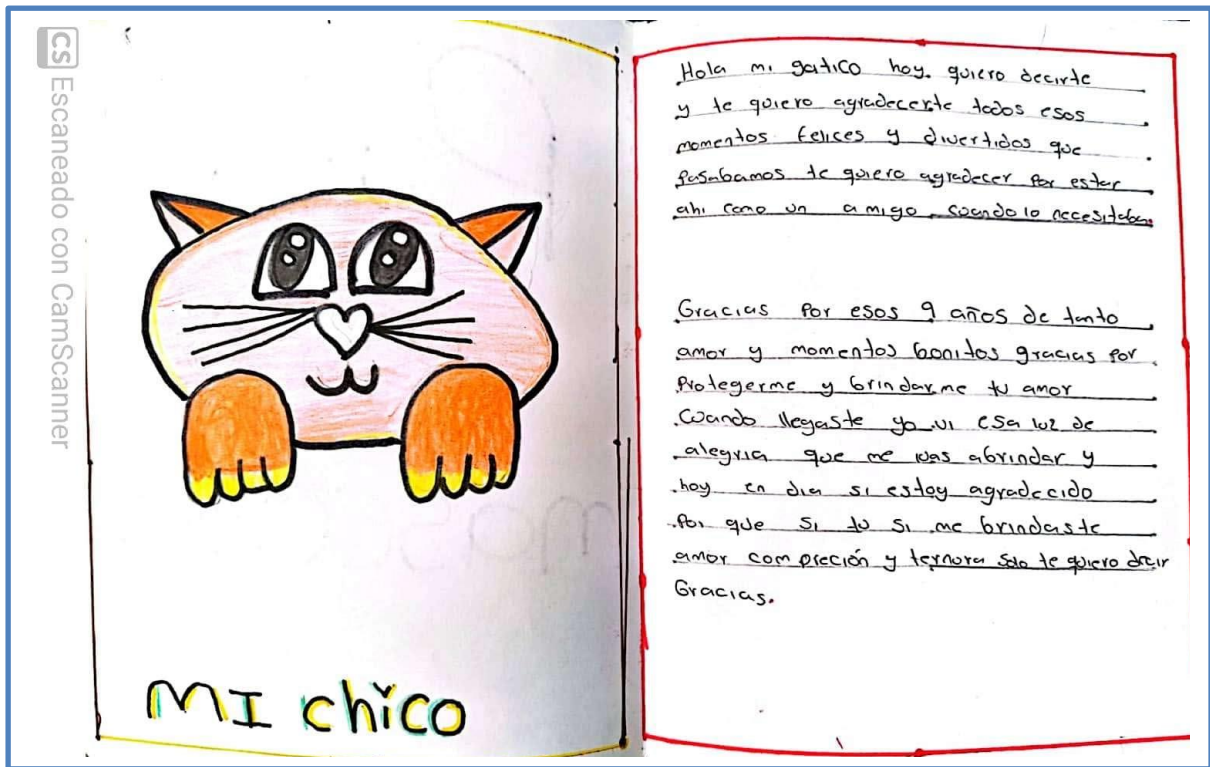 CS Escaneado con CamScanner
MI chico
Hola mi gatico hoy. quiero decirte
y te quiero agradecerte todos esos
momentos felices y divertidos que
Pasabamos te quiero agradecer por estar
ahi como un amigo cuando lo necesitaba.
Gracias por esos 9 años de tanto
amor y momentos bonitos gracias por
Protegerme y brindarme tu amor
Cuando llegaste yo vi esa luz de
alegria que me ivas abrindar y
hoy en dia si estoy agradecido
Por que si tu si me brindaste
amor compreción y ternura solo te quiero decir
Gracias.